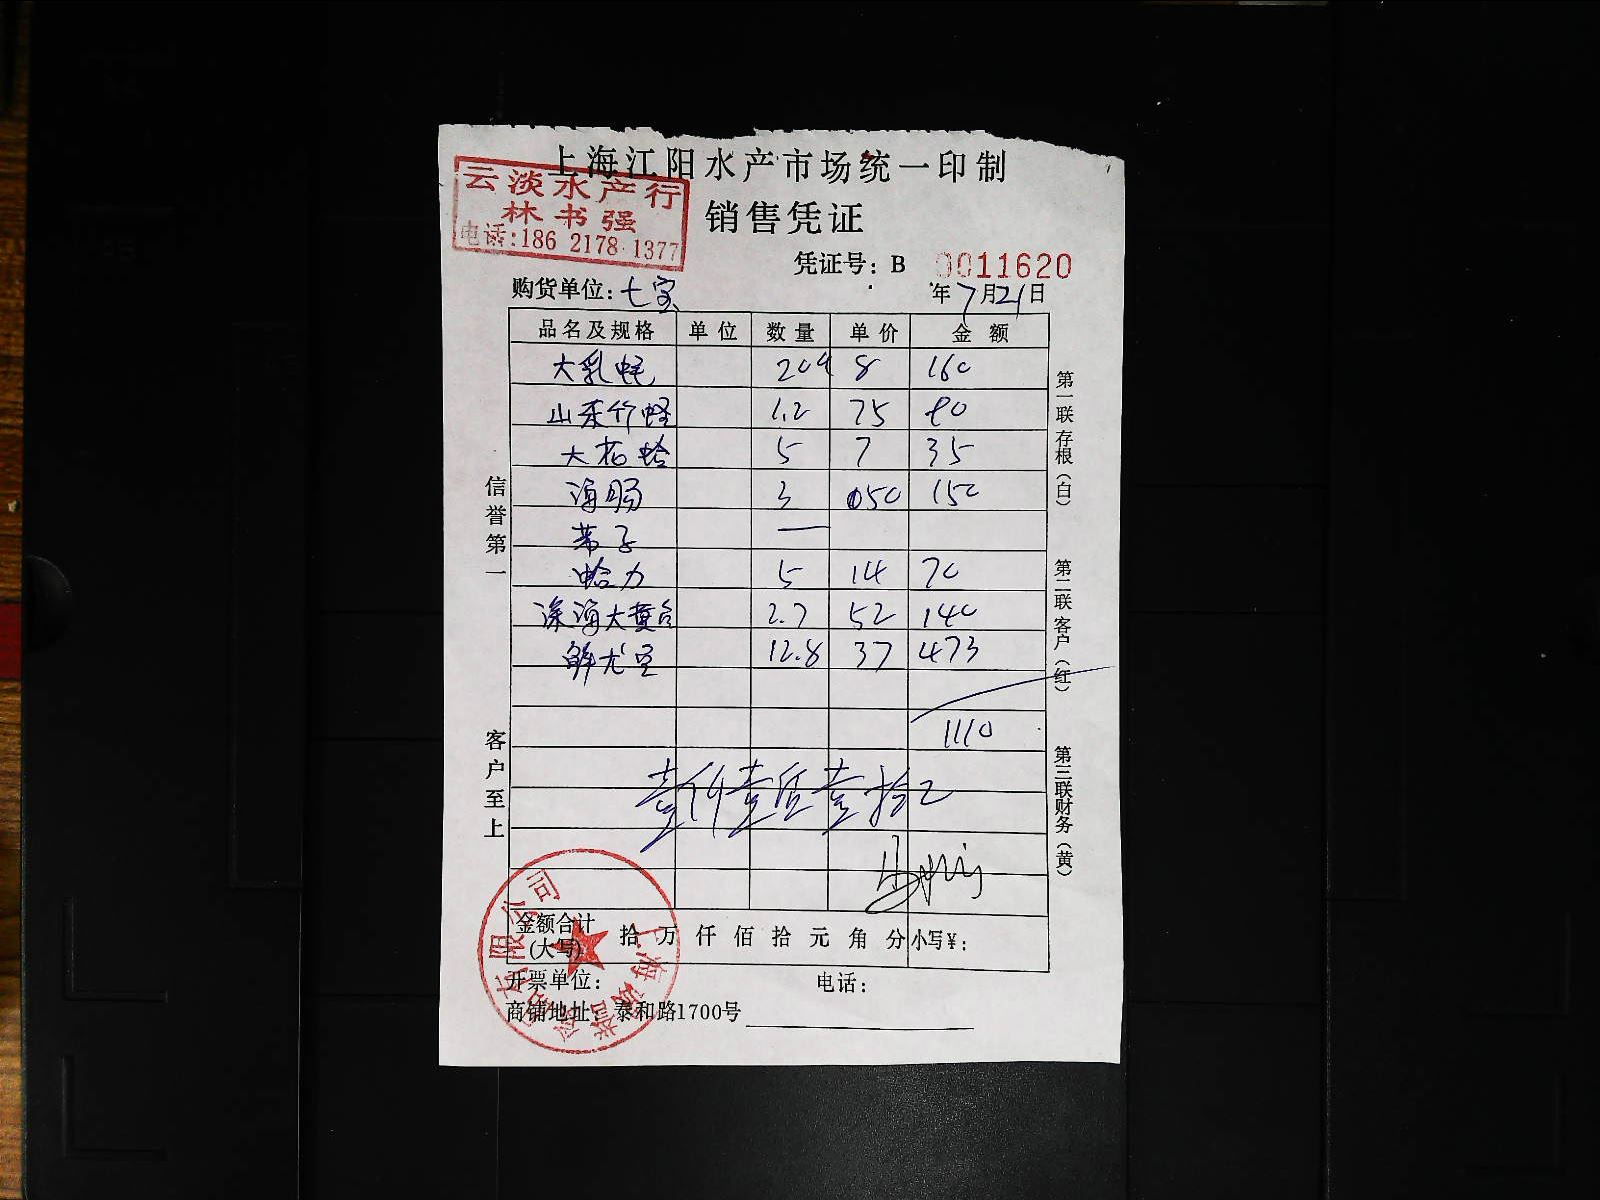 上海江阳水产市场统一印制
云淡水产行
林书强
电话:186 2178 1377
销售凭证
凭证号：B 0011620
购货单位:七宝 年7月21日
品名及规格 单位 数量 单价 金额
大乳蚝 20个 8 160
山东竹蛏 1.2 75 90
大花蛤 5 7 35
海肠 3 50 150
带子 —
蛤力 5 14 70
深海大黄 2.7 52 140
鲜尤 12.8 37 473
1110
壹仟壹佰壹拾元
金额合计(大写) 拾 万 仟 佰 拾 元 角 分 小写¥：
开票单位： 电话：
商铺地址：泰和路1700号
信誉第一
客户至上
第一联存根（白）
第二联客户（红）
第三联财务（黄）
有限公司
上海